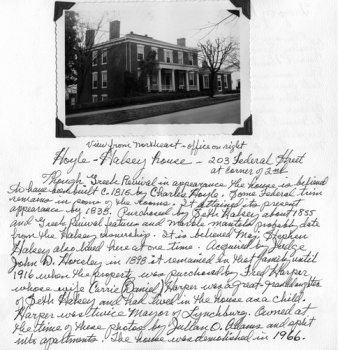 View from Northeast - office on right
Hoyle - Halsey House - 203 Federal Street
at corner of 2nd.
Though Greek Revival in appearance the house is believed
to have been built c. 1816 by Charles Hoyle. Some Federal trim
remains in some of the rooms. It attained its present
appearance by 1838. Purchased by Seth Halsey about 1855
and Greek Revival features and marble mantels probably date
from the Halsey ownership. It is believed Maj. Stephen
Halsey also lived here at one time. Acquired by Judge
John D. Horsley in 1898 it remained in that family until
1916 when the property was purchased by Fred Harper
whose wife Carrie (Daniel) Harper was a great-granddaughter
of Seth Halsey and had lived in the house as a child.
Harper was twice Mayor of Lynchburg. Owned at
the time of these photos by Julian O. Adams and split
into apartments. The house was demolished in 1966.